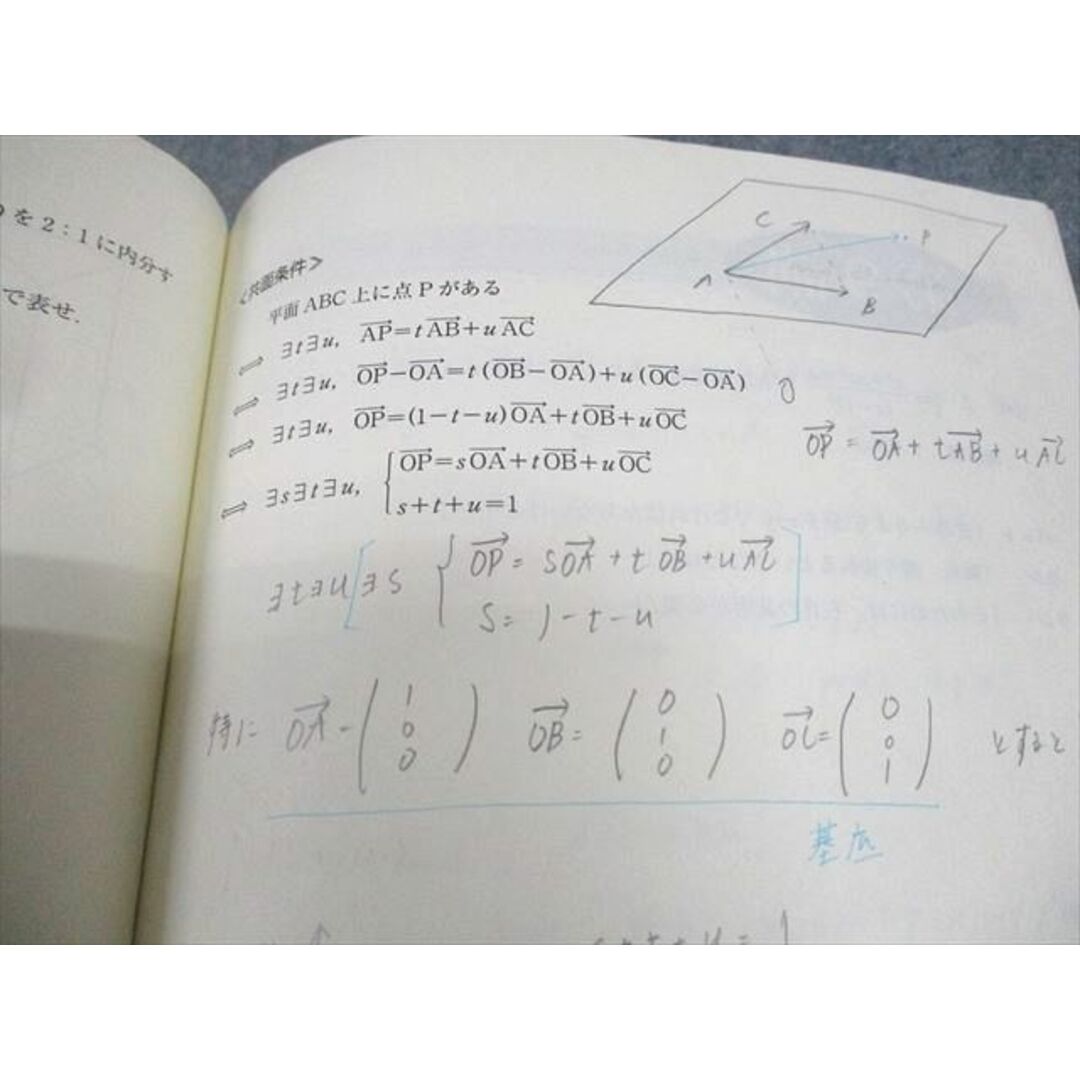 を2:1に内分す
で表せ.
<共面条件>
平面 ABC 上に点 P がある
⟺ ∃t∃u, AP→=tAB→+uAC→
⟺ ∃t∃u, OP→−OA→=t(OB→−OA→)+u(OC→−OA→)
⟺ ∃t∃u, OP→=(1−t−u)OA→+tOB→+uOC→
⟺ ∃s∃t∃u, {OP→=sOA→+tOB→+uOC→
s+t+u=1
C
P
A
B
O
OP→ = OA→+ tAB→+ uAC→
∃t∃u[∃s { OP→= sOA→+tOB→+uAC→
s= 1-t-u ]
特に OA→-(1 0 0) OB→=(0 1 0) OC→=(0 0 1) とすると
基底
s+t+u=1